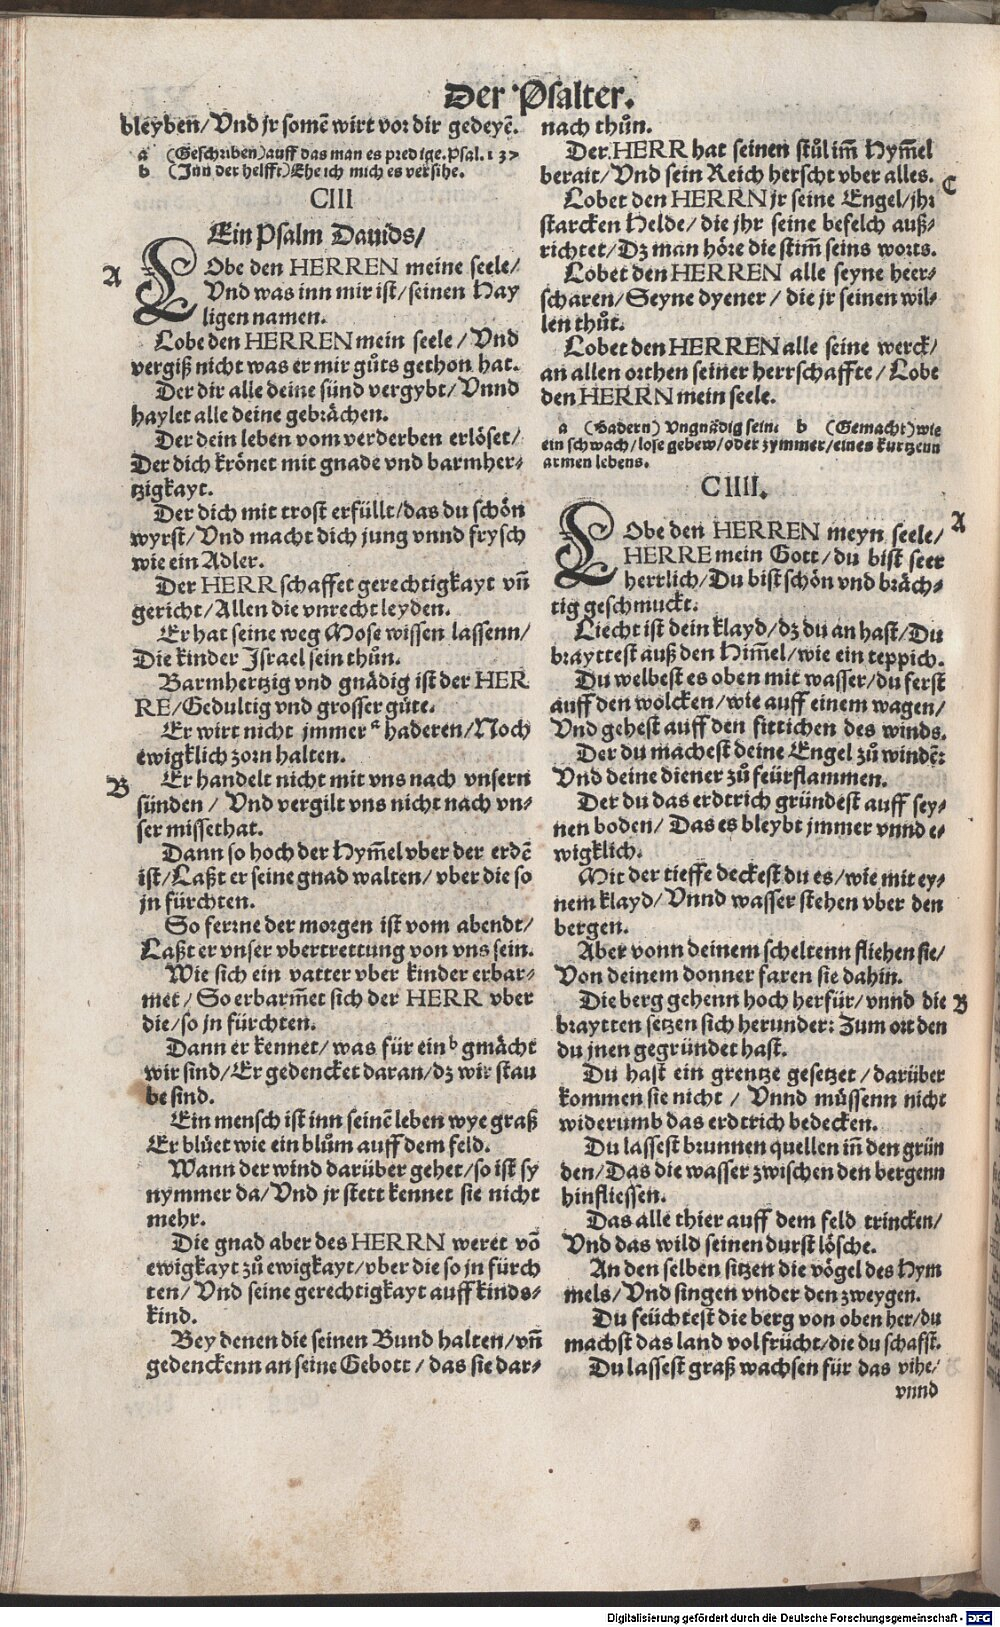 Der Psalter.
bleyben/ Vnd jr somē wirt vor dir gedeyē.
a (Geschriben) auff das man es predige. Psal. 137
b (Inn der helfft) Ehe ich mich es versihe.
CIII
Ein Psalm Dauids/
A
LObe den HERREN meine seele/
Vnd was inn mir ist/ seinen Hay
ligen namen.
Lobe den HERREN mein seele / Vnd
vergiß nicht was er mir gůts gethon hat.
Der dir alle deine sünd vergybt/ Vnnd
haylet alle deine gebrächen.
Der dein leben vom verderben erlöset/
Der dich krönet mit gnade vnd barmher-
tzigkayt.
Der dich mit trost erfüllt/ das du schön
wyrst/ Vnd macht dich jung vnnd frysch
wie ein Adler.
Der HERR schaffet gerechtigkayt vn̄
gericht/ Allen die vnrecht leyden.
Er hat seine weg Mose wissen lassenn/
Die kinder Israel sein thůn.
Barmhertzig vnd gnädig ist der HER
RE/ Gedultig vnd grosser güte.
Er wirt nicht jmmer a haderen/ Noch
ewigklich zorn halten.
B
Er handelt nicht mit vns nach vnsern
sünden / Vnd vergilt vns nicht nach vn-
ser missethat.
Dann so hoch der Hym̄el vber der erdē
ist/ Laßt er seine gnad walten/ vber die so
jn fürchten.
So ferrne der morgen ist vom abendt/
Laßt er vnser vbertrettung von vns sein.
Wie sich ein vatter vber kinder erbar-
met/ So erbarm̄et sich der HERR vber
die/ so jn fürchten.
Dann er kennet/ was für ein b gmächt
wir sind/ Er gedencket daran/ dz wir stau
be sind.
Ein mensch ist inn seinē leben wye graß
Er blüet wie ein blům auff dem feld.
Wann der wind darüber gehet/ so ist sy
nymmer da/ Vnd jr stett kennet sie nicht
mehr.
Die gnad aber des HERRN weret vō
ewigkayt zů ewigkayt/ vber die so jn fürch
ten/ Vnd seine gerechtigkayt auff kinds-
kind.
Bey denen die seinen Bund halten/ vn̄
gedenckenn an seine Gebott/ das sie dar-
nach thůn.
Der HERR hat seinen stůl im̄ Hym̄el
berait/ Vnd sein Reich herscht vber alles.
C
Lobet den HERRN jr seine Engel/ jhr
starcken Helde/ die jhr seine befelch auß-
richtet/ Dz man höre die stim̄ seins worts.
Lobet den HERREN alle seyne heer-
scharen/ Seyne dyener / die jr seinen wil-
len thůt.
Lobet den HERREN alle seine werck/
an allen orthen seiner herrschaffte/ Lobe
den HERRN mein seele.
a (Hadern) Vngnädig sein. b (Gemacht) wie
ein schwach/ lose gebew/ oder zymmer/ eines kurtzenn
armen lebens.
CIIII.
A
LObe den HERREN meyn seele/
HERRE mein Gott/ du bist seer
herrlich/ Du bist schön vnd bräch-
tig geschmuckt.
Liecht ist dein klayd/ dz du an hast/ Du
brayttest auß den Him̄el/ wie ein teppich.
Du welbest es oben mit wasser/ du ferst
auff den wolcken/ wie auff einem wagen/
Vnd gehest auff den fittichen des winds.
Der du machest deine Engel zů windē:
Vnd deine diener zů feürflammen.
Der du das erdtrich gründest auff sey-
nen boden/ Das es bleybt jmmer vnnd e-
wigklich.
Mit der tieffe deckest du es/ wie mit ey-
nem klayd/ Vnnd wasser stehen vber den
bergen.
Aber vonn deinem scheltenn fliehen sie/
Von deinem donner faren sie dahin.
Die berg gehenn hoch herfür/ vnnd die
B
braytten setzen sich herunder: Zum ort den
du jnen gegründet hast.
Du hast ein grentze gesetzet / darüber
kommen sie nicht / Vnnd müssenn nicht
widerumb das erdtrich bedecken.
Du lassest brunnen quellen in̄ den grün
den/ Das die wasser zwischen den bergenn
hinfliessen.
Das alle thier auff dem feld trincken/
Vnd das wild seinen durst lösche.
An den selben sitzen die vögel des Hym
mels/ Vnd singen vnder den zweygen.
Du feüchtest die berg von oben her/ du
machst das land vol frücht/ die du schaffst.
Du lassest graß wachsen für das vihe/
vnnd
Digitalisierung gefördert durch die Deutsche Forschungsgemeinschaft - DFG